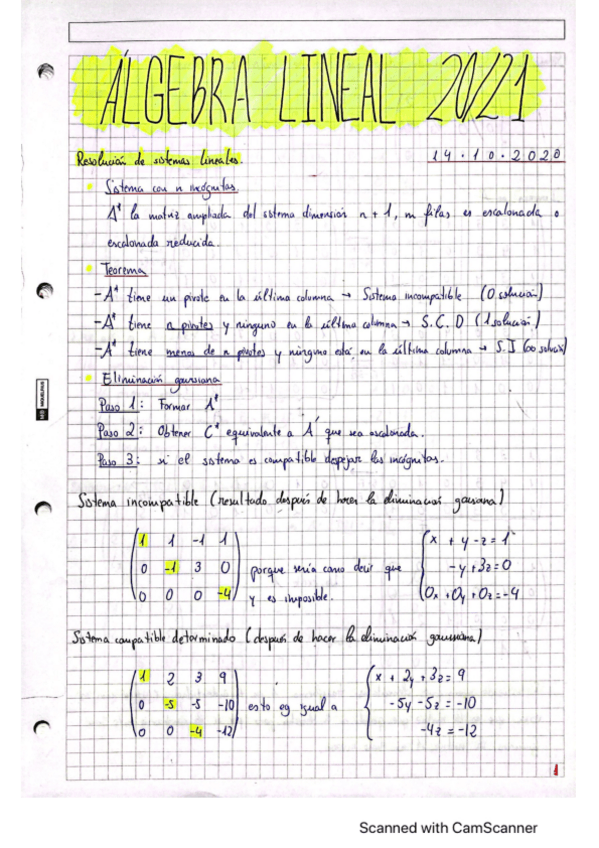 ÁLGEBRA LINEAL 20/21
Resolución de sistemas lineales.
14·10·2020
Sistema con n incógnitas
A* la matriz ampliada del sistema dimensión n+1, m filas es escalonada o
escalonada reducida.
Teorema
-A* tiene un pivote en la última columna → Sistema incompatible (0 solución)
-A* tiene n pivotes y ninguno en la última columna → S.C.D (1 solución)
-A* tiene menos de n pivotes y ninguno está en la última columna → S.I (∞ solución)
Eliminación gaussiana
Paso 1: Formar A*
Paso 2: Obtener C* equivalente a A* que sea escalonada.
Paso 3: si el sistema es compatible despejar las incógnitas.
MIQUELRIUS
Sistema incompatible (resultado después de hacer la eliminación gausiana)
1 1 -1 1
0 -1 3 0
0 0 0 -4
porque sería como decir que
y es imposible.
x + y -z = 1
-y +3z = 0
0x +0y +0z = -4
Sistema compatible determinado (después de hacer la eliminación gaussiana)
1 2 3 9
0 -5 -5 -10
0 0 -4 -12
esto es igual a
x + 2y +3z = 9
-5y -5z = -10
-4z = -12
1
Scanned with CamScanner